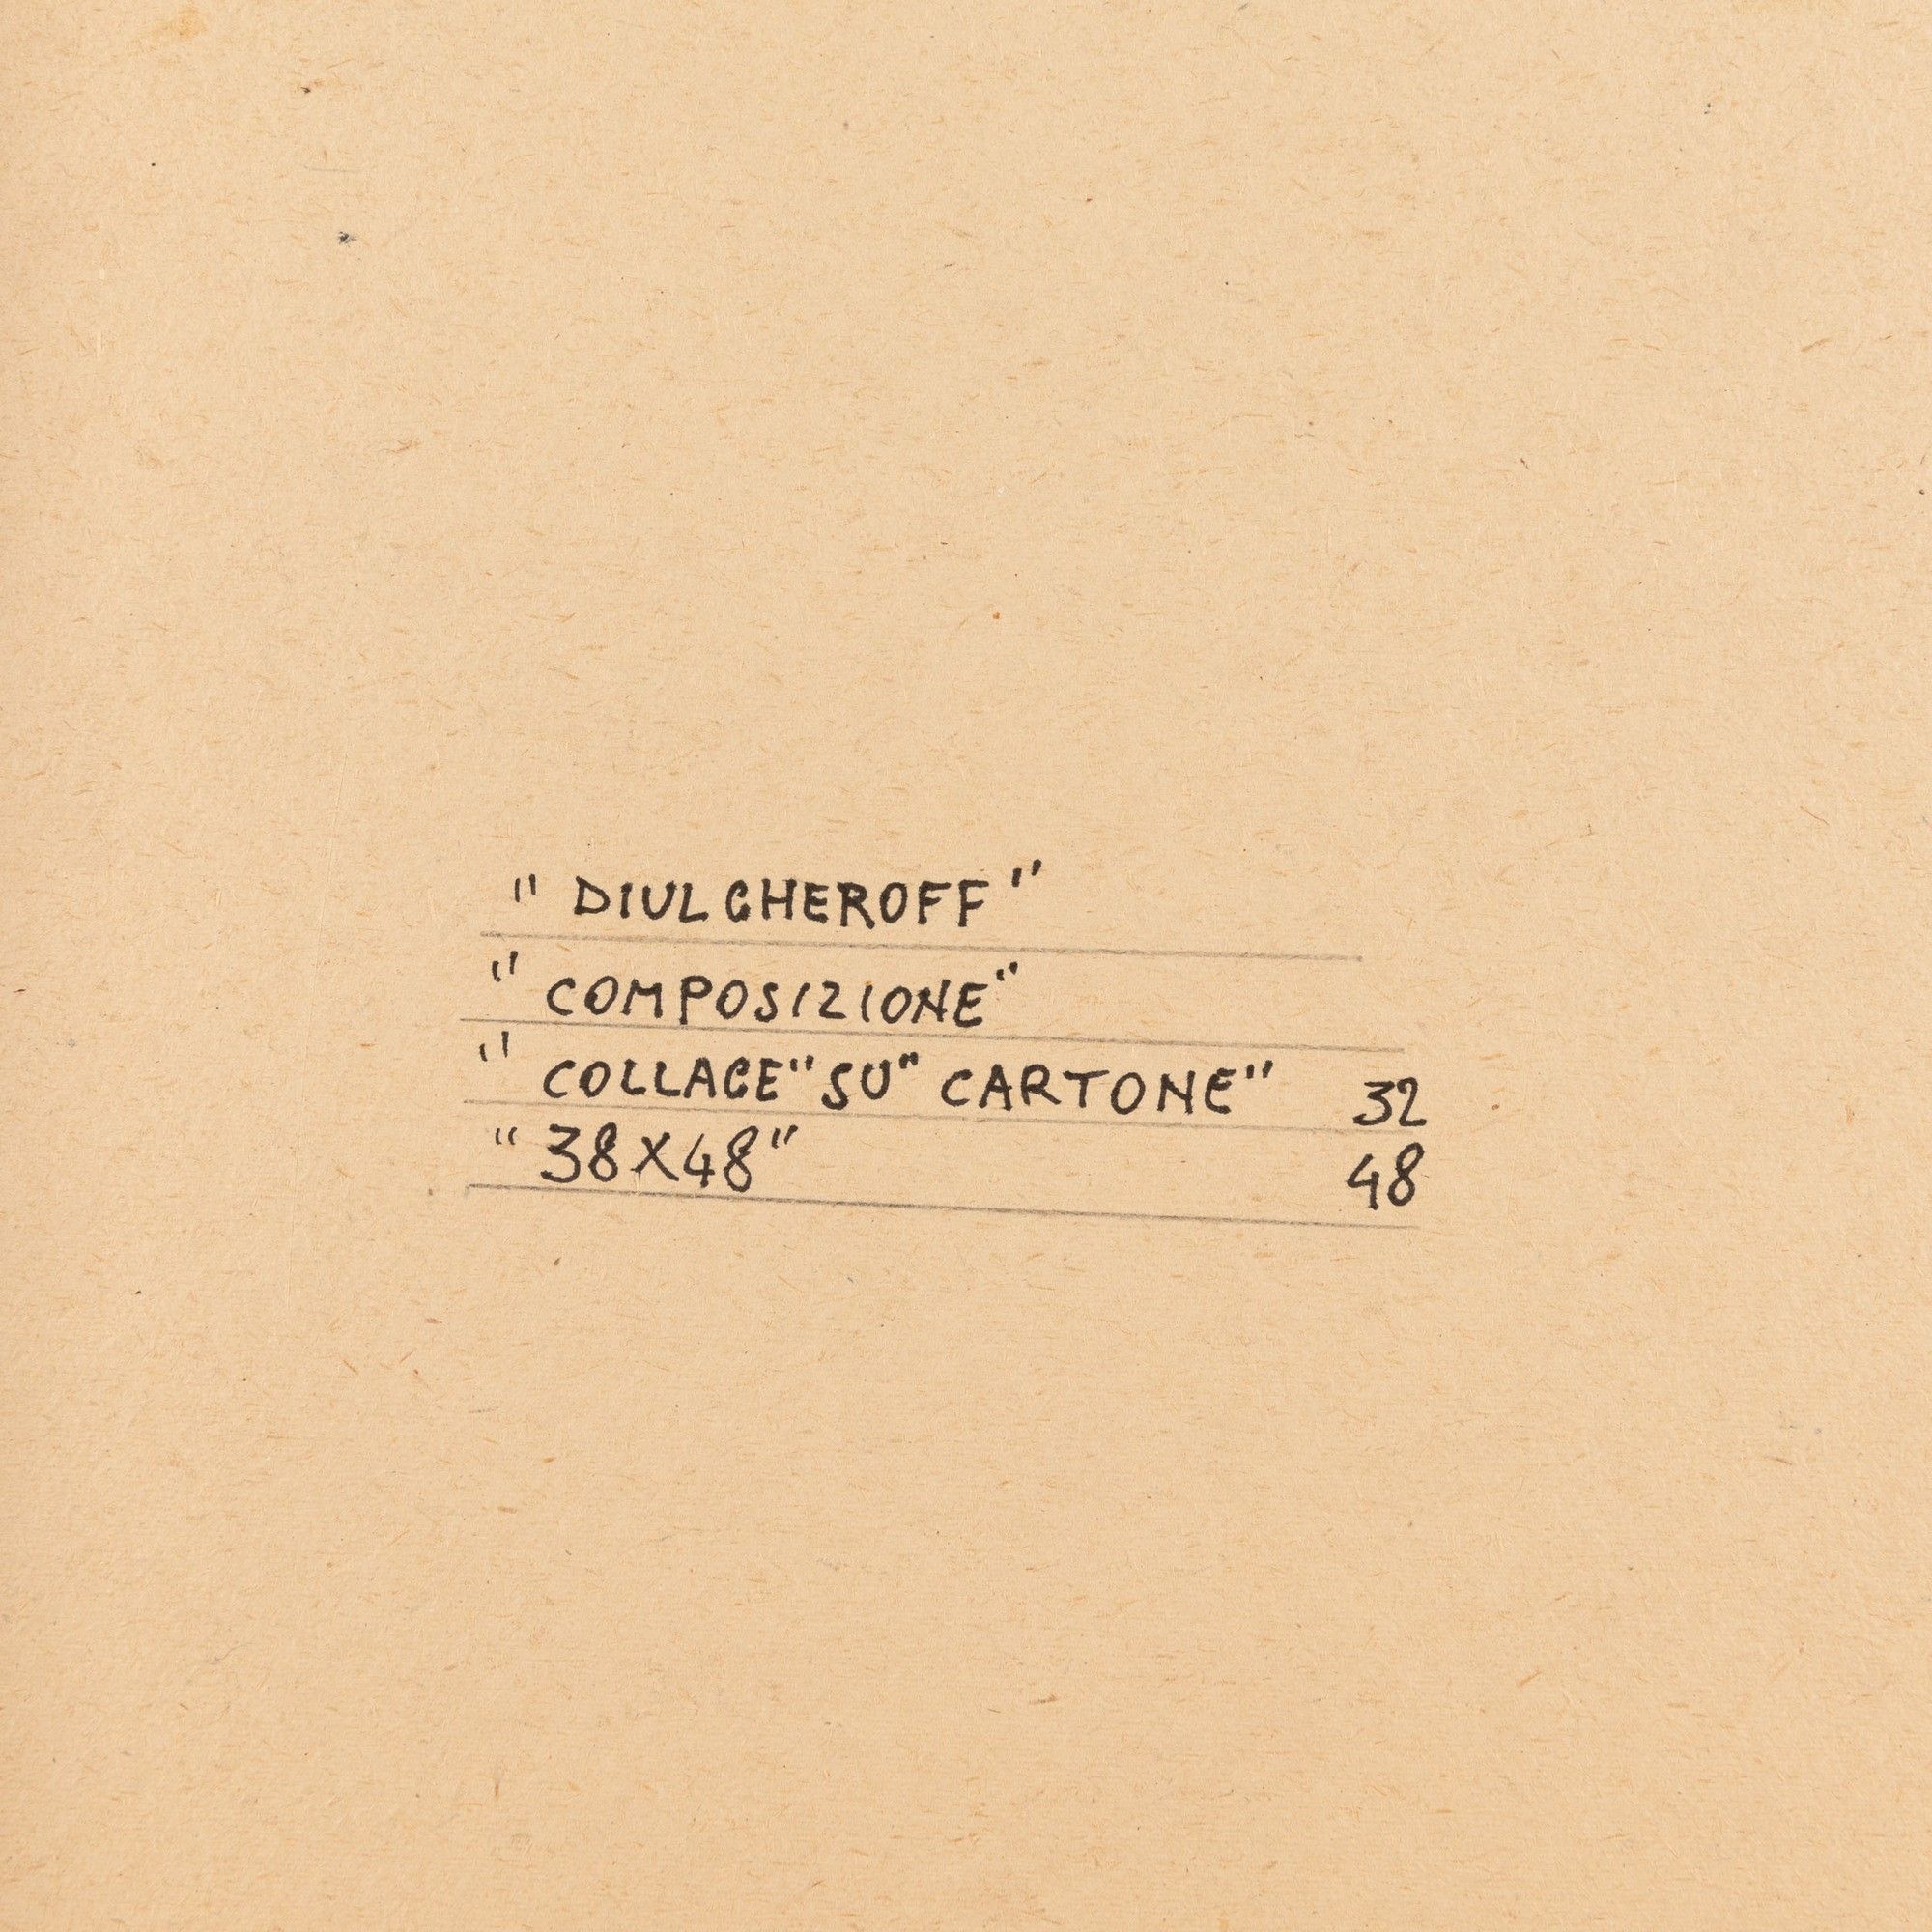 " DIULGHEROFF "
" COMPOSIZIONE "
" COLLAGE " SU " CARTONE " 32
" 38X48 " 48